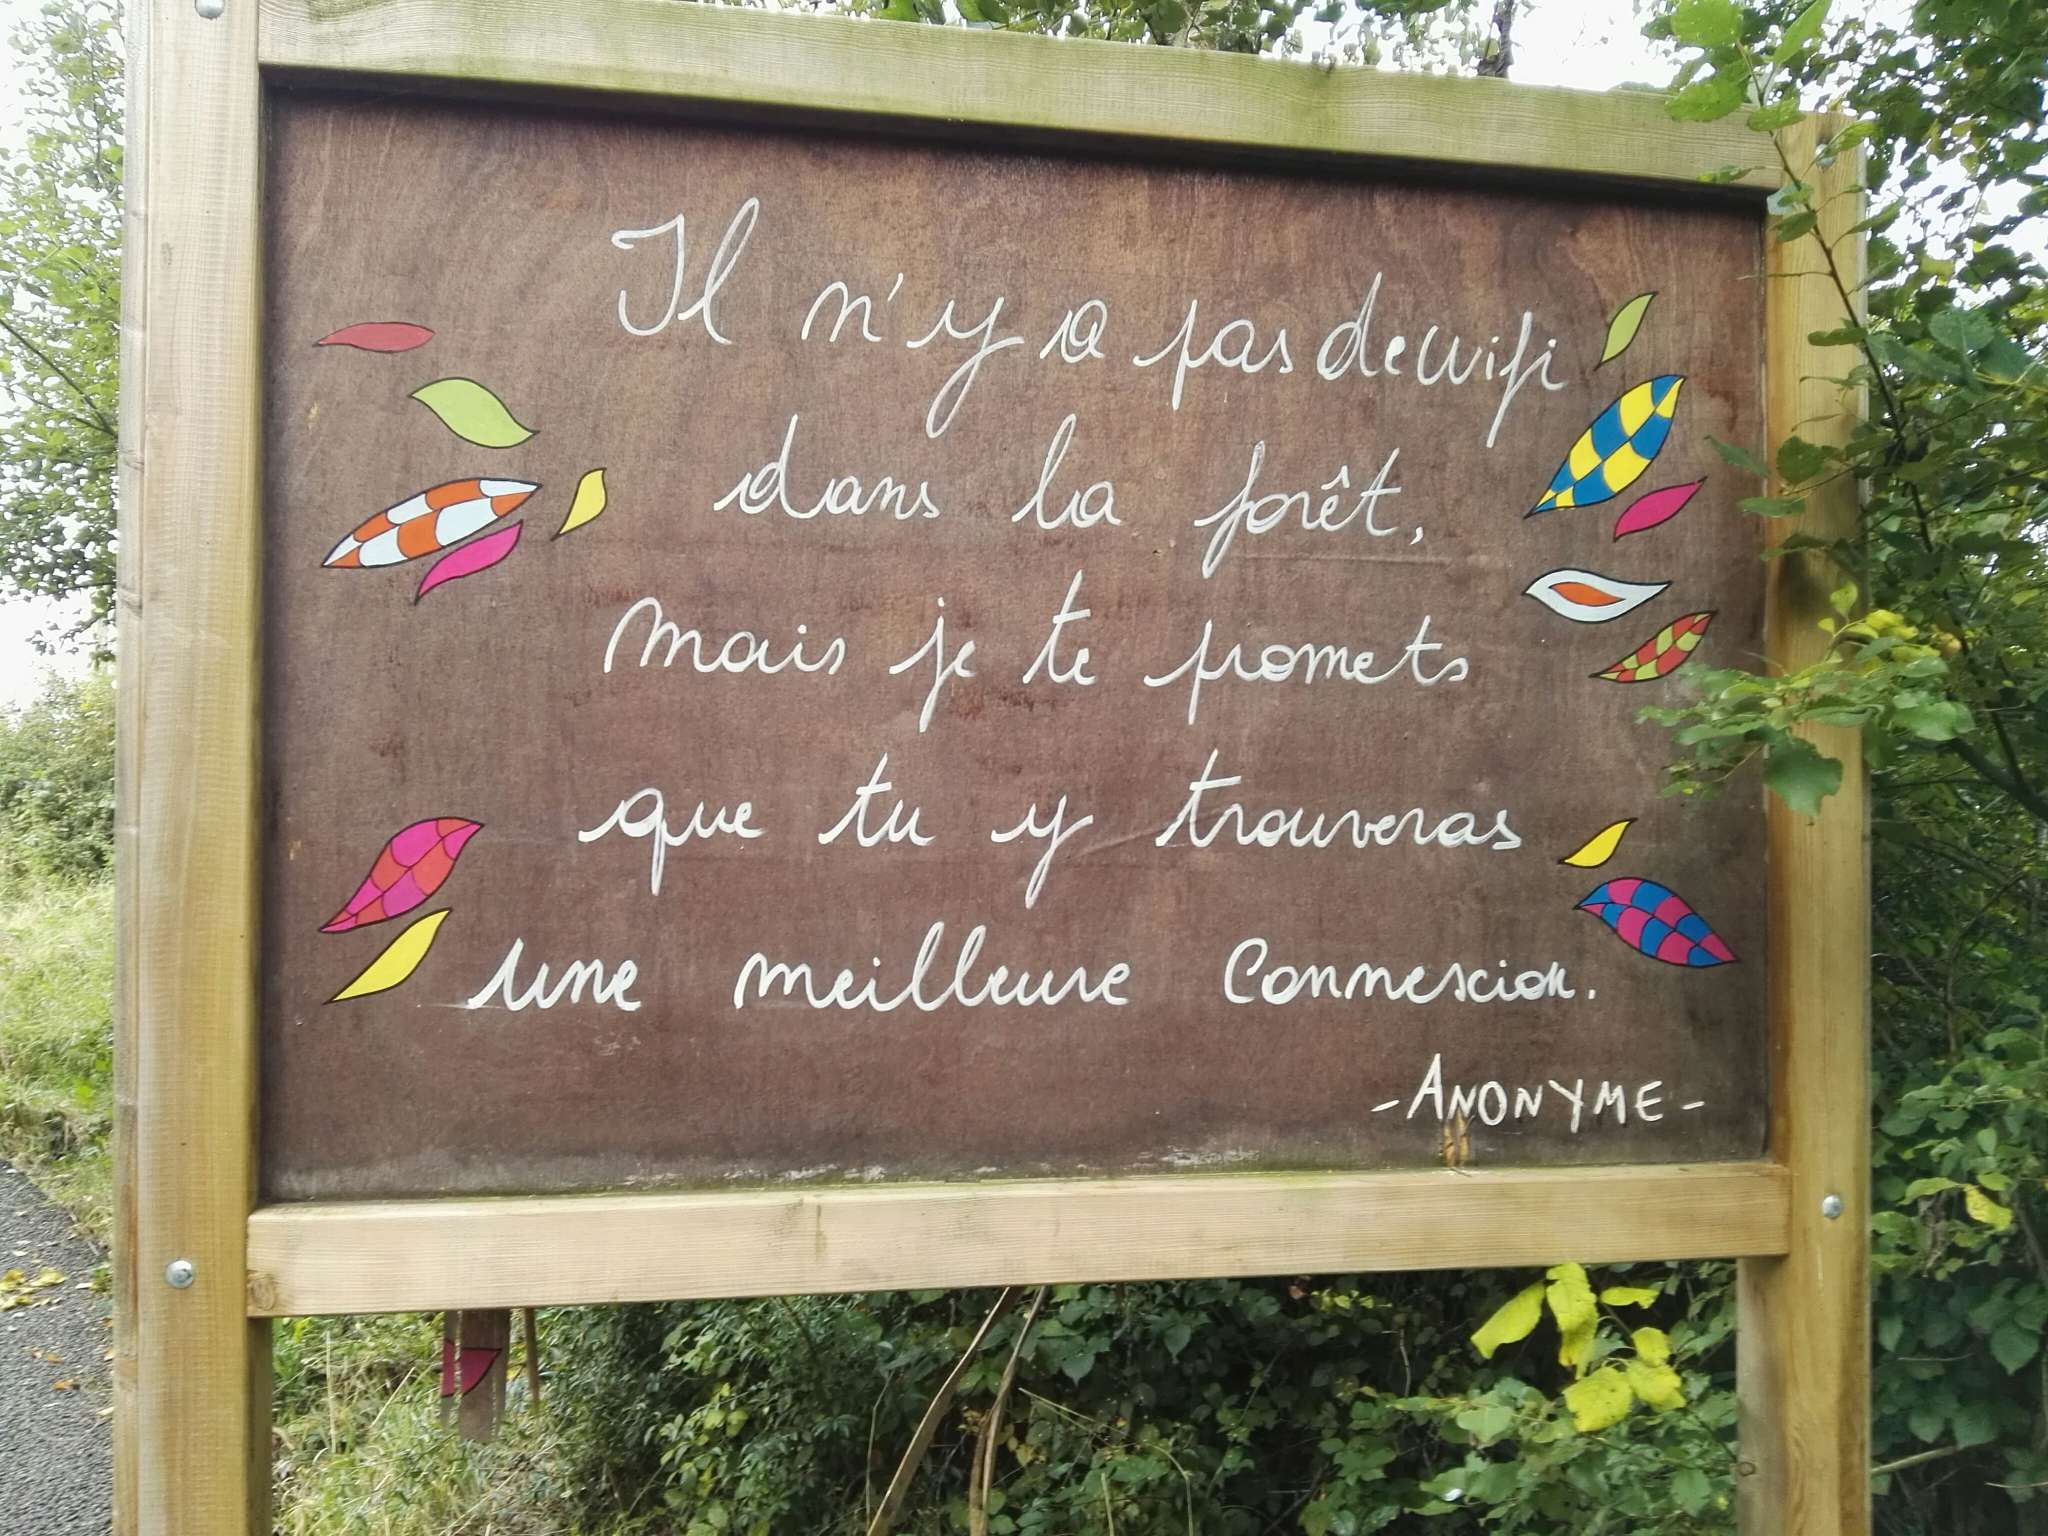 Il n'y a pas de wifi
dans la forêt,
mais je te promets
que tu y trouveras
une meilleure connexion.
- ANONYME -